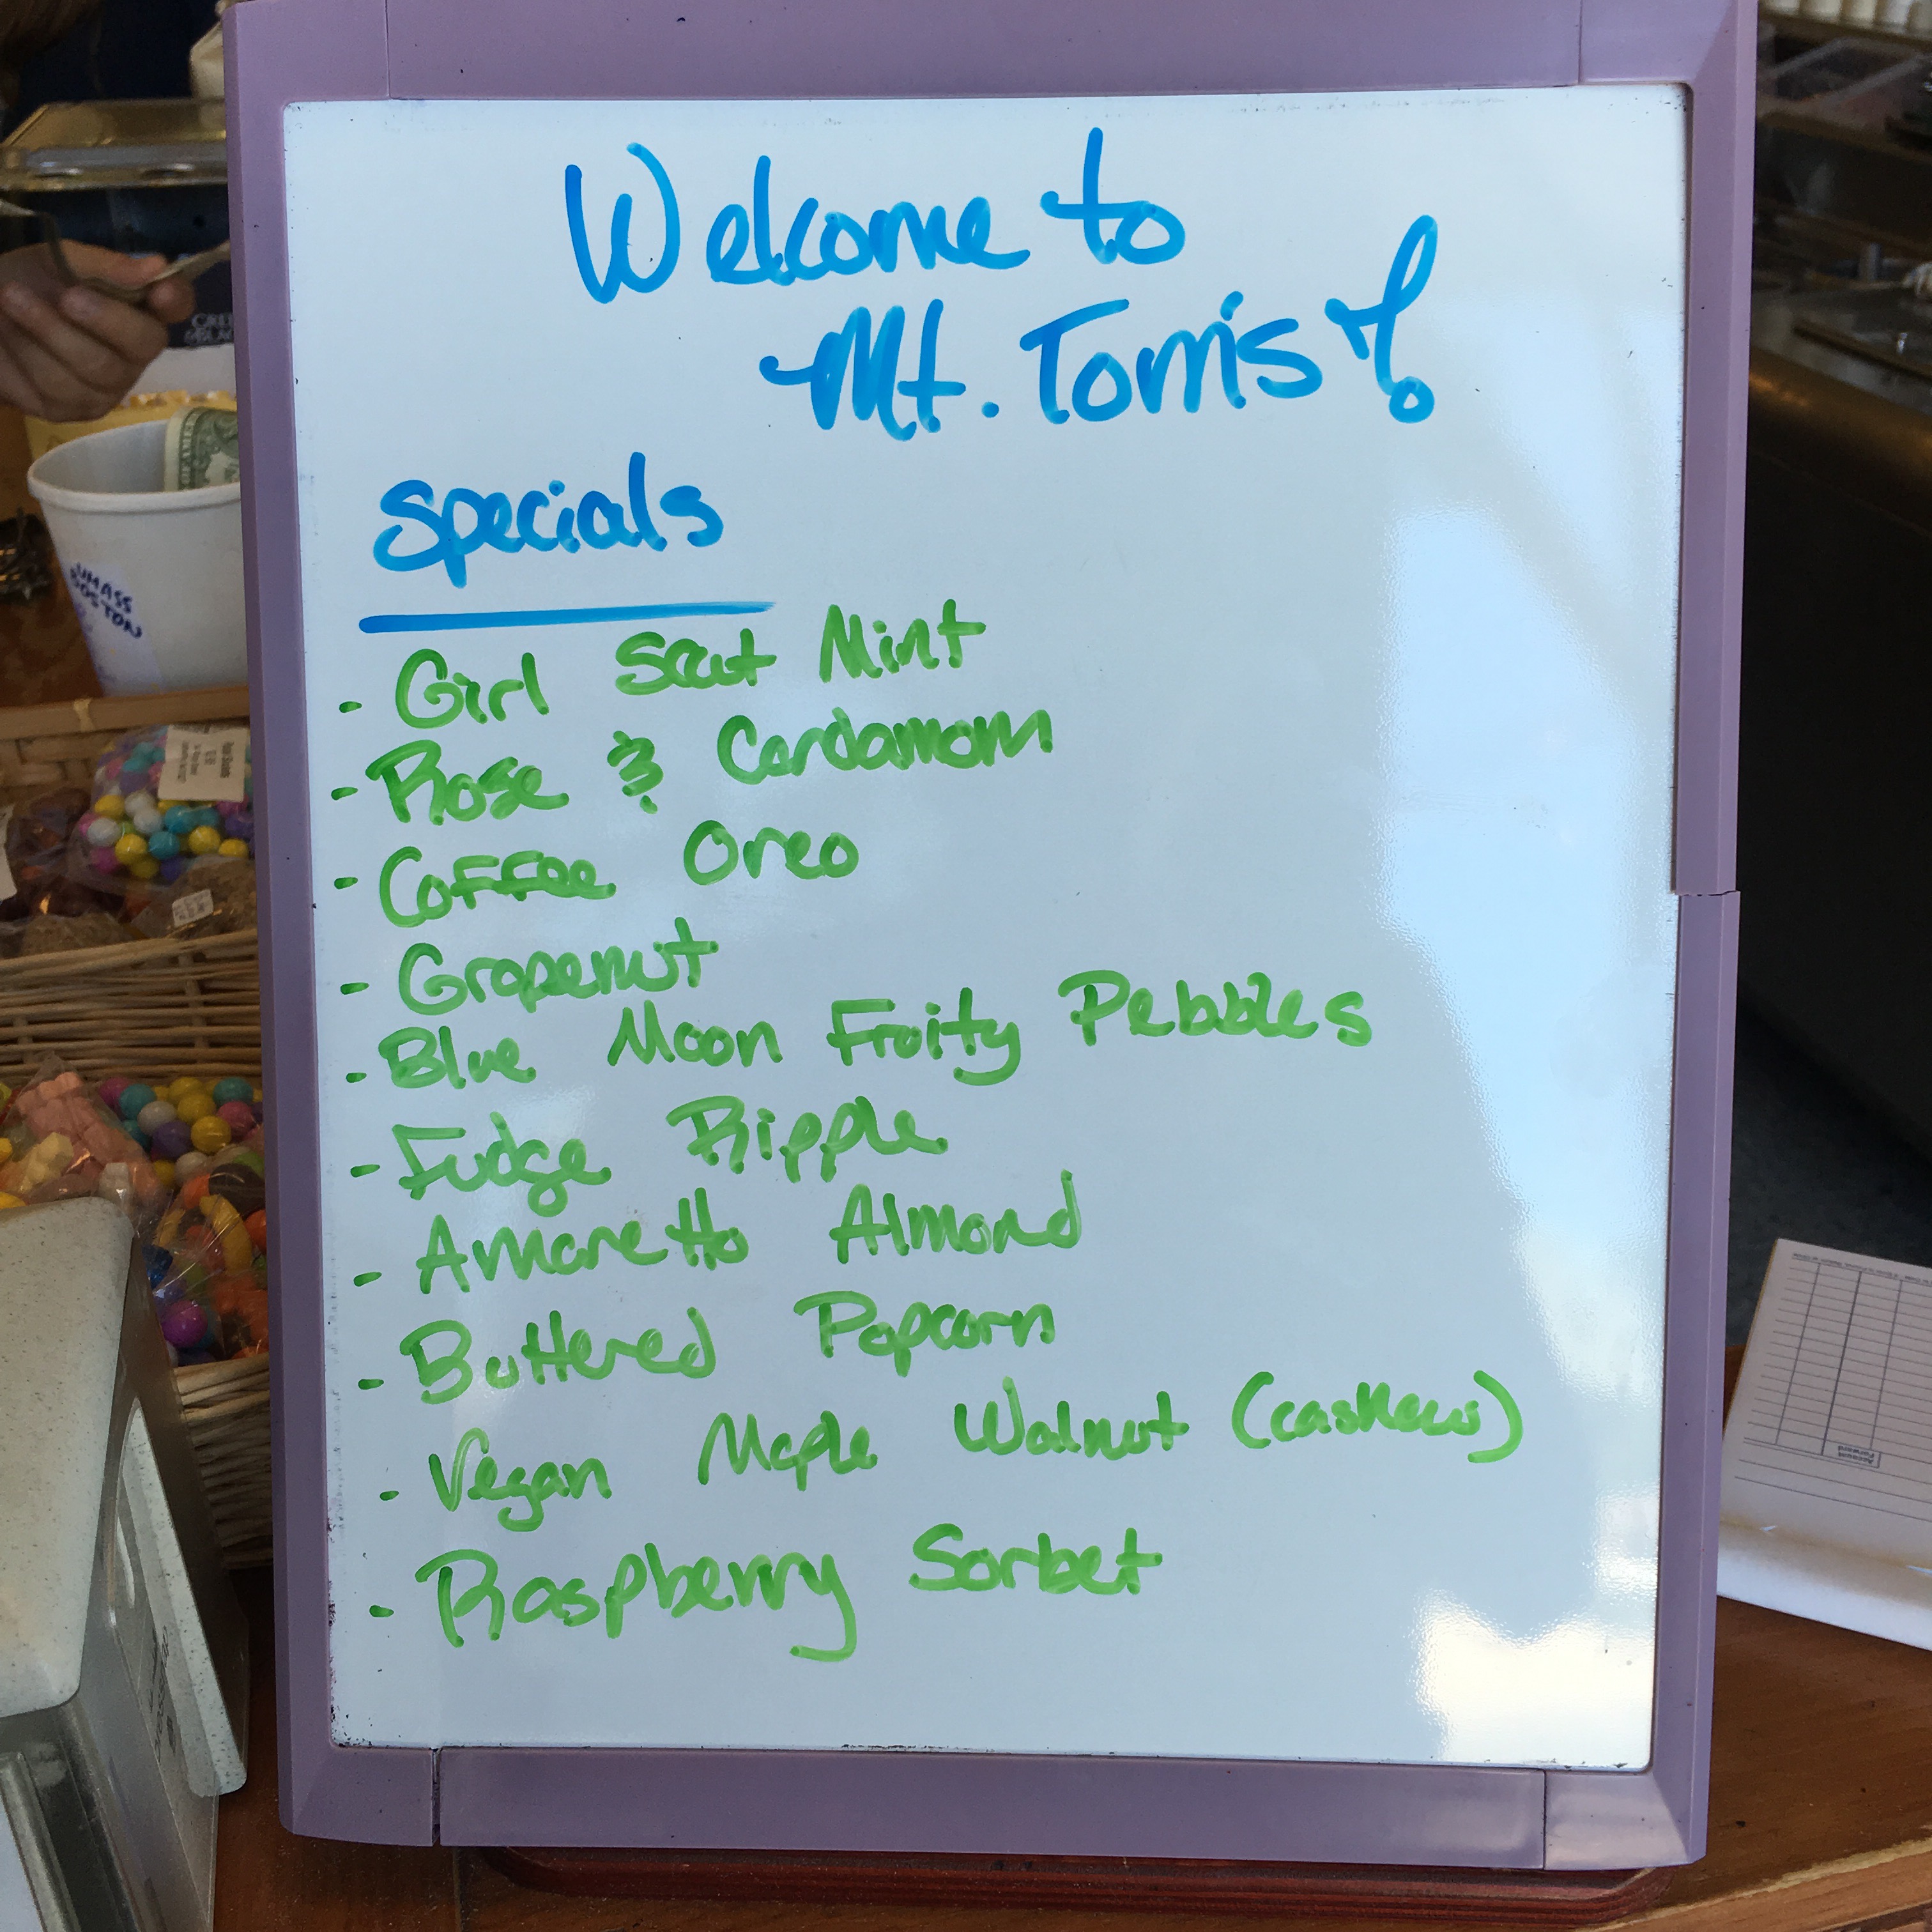 Welcome to
Mt. Tom's!
Specials
- Girl Scout Mint
- Rose & Cardamom
- Coffee Oreo
- Grapenut
- Blue Moon Fruity Pebbles
- Fudge Ripple
- Amaretto Almond
- Buttered Popcorn
- Vegan Maple Walnut (cashew)
- Raspberry Sorbet
UMASS
BOSTON